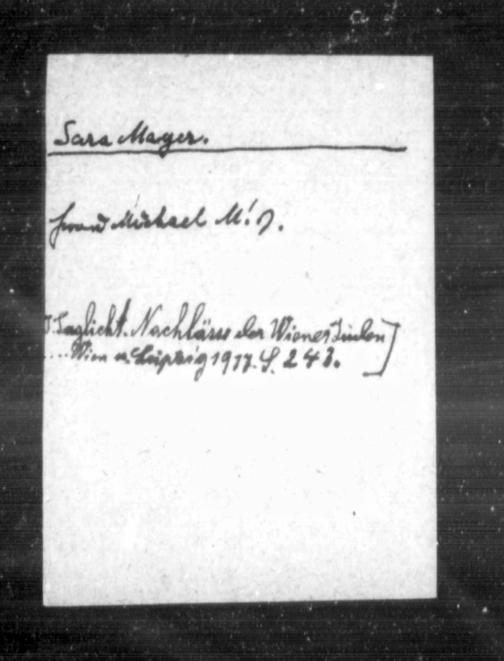 Sara Mayer.
Michael M.
Taglicht. Nachlässe der Wiener Juden]
.... Wien u. Leipzig 1917. S. 243.